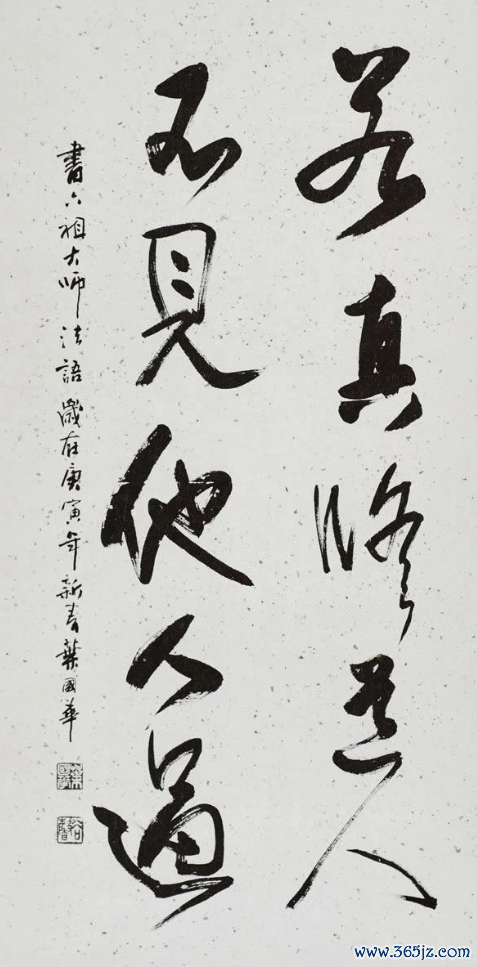 若真修道人
不見他人過
書六祖大師法語歲在庚寅年新春葉國華
www.365jz.com